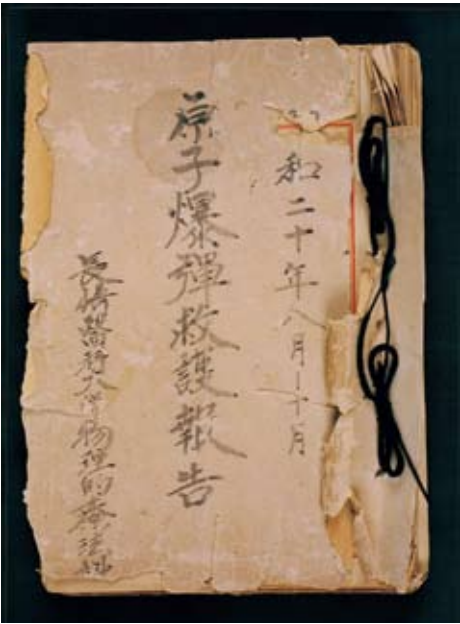 和二十年八月―十月
原子爆彈救護報告
長崎醫科大学物理的療法科